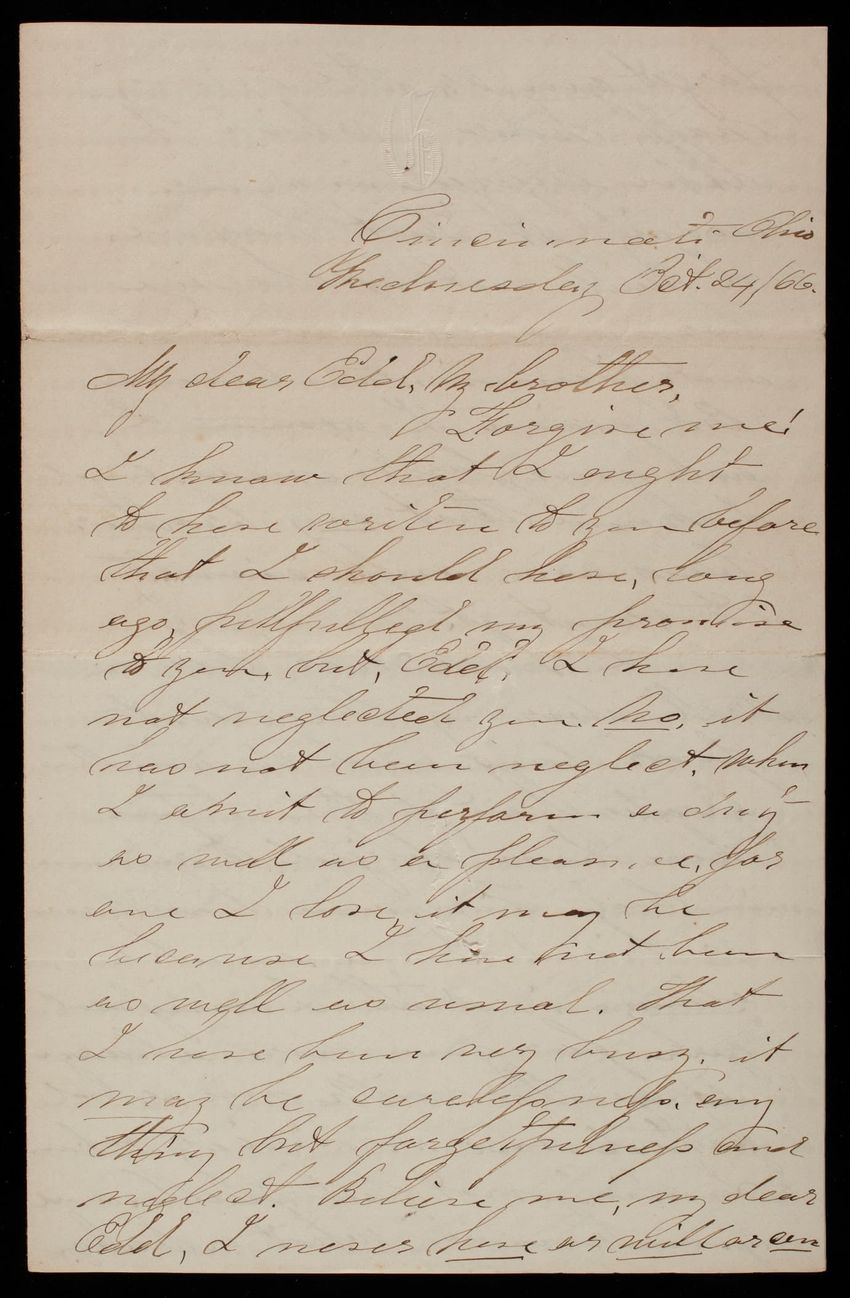 G
Cincinnati Ohio
Wednesday Oct. 24/66.
My dear Edd, My brother,
Forgive me!
I know that I ought
to have written to you before
that I should have, long
ago, fullfulled my promise
to you, but, Edd, I have
not neglected you. No, it
has not been neglect. When
I omit to perform a duty
as well as a pleasure, for
one I love, it may be
because I have not been
as well as usual. That
I have been very busy. it
may be carelessness. any
thing but forgetfulness and
neglect. Believe me, my dear
Edd, I never have or will or can